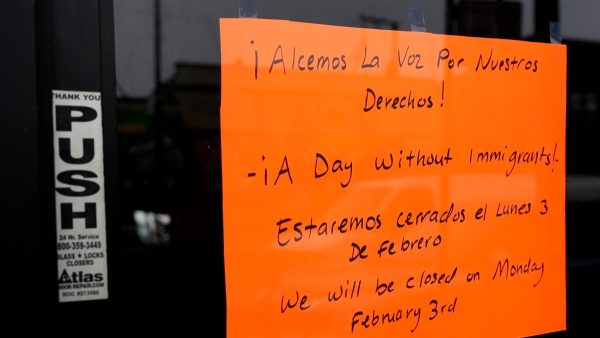 THANK YOU
PUSH
24 Hr. Service
800-359-3449
GLASS • LOCKS
CLOSERS
Atlas
DOOR REPAIR.COM
¡Alcemos La Voz Por Nuestros
Derechos!
-¡A Day Without Immigrants!-
Estaremos cerrados el Lunes 3
De Febrero
We will be closed on Monday
February 3rd